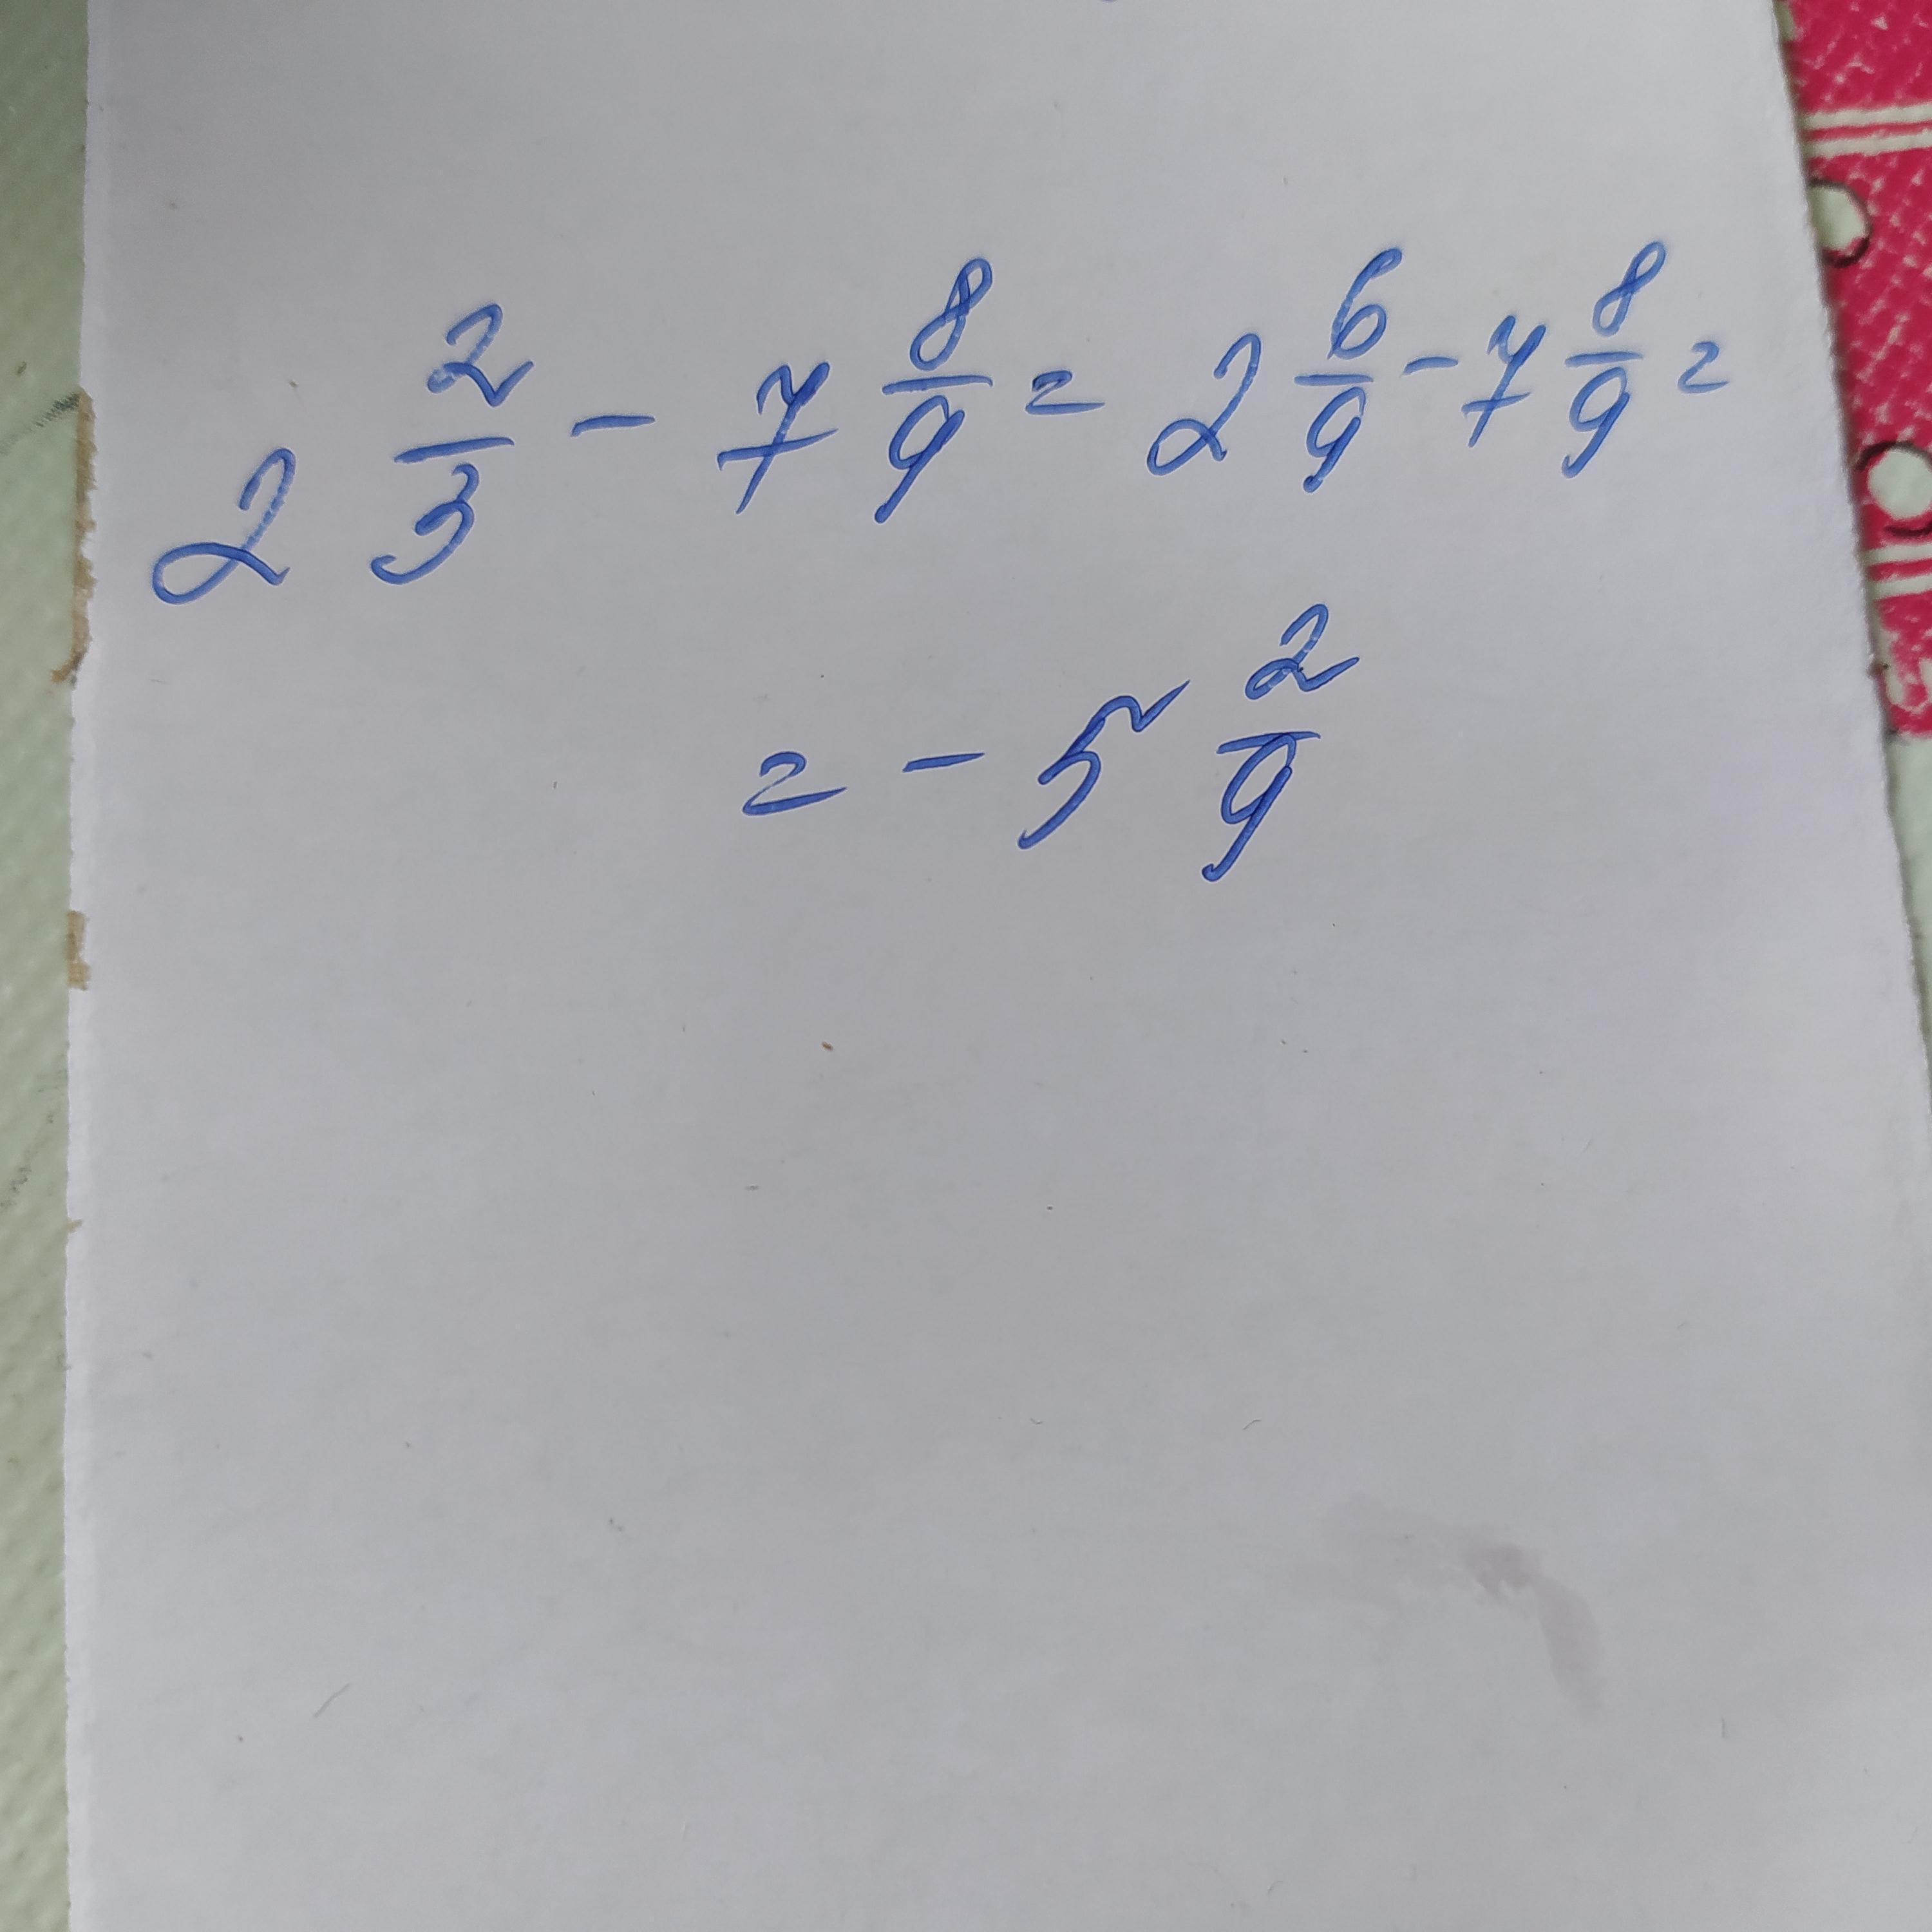 2 2/3 - 7 8/9 = 2 6/9 - 7 8/9 =
= - 5 2/9